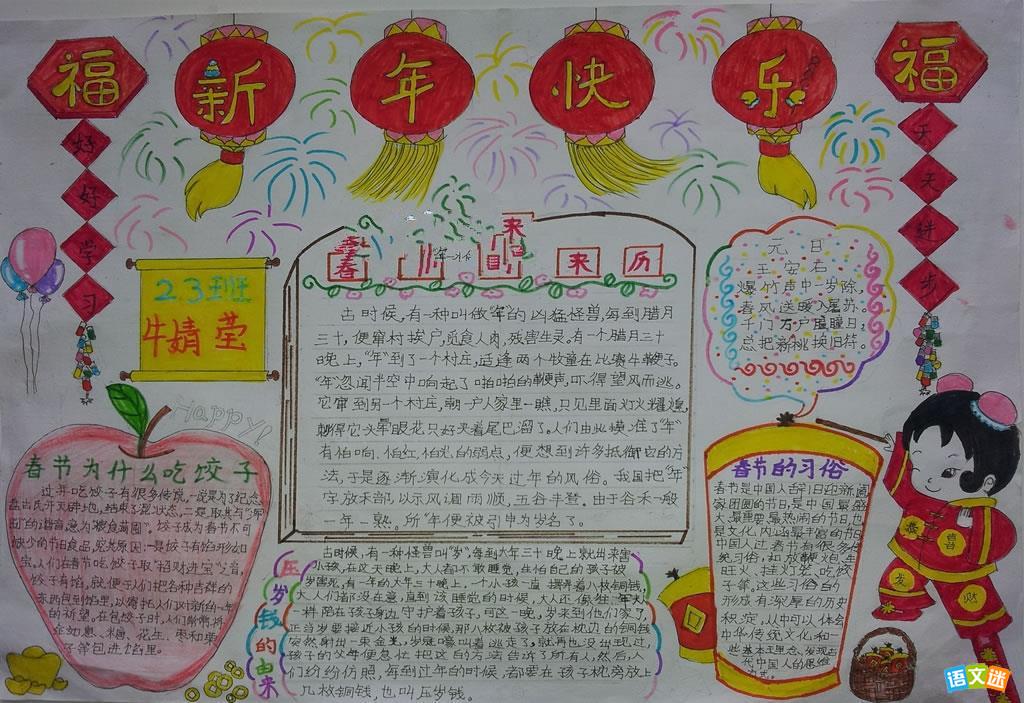 新年快乐
福
好好学习
福
天天进步
2.3班
牛婧莹
Happy!
春
来
来历
古时候,有一种叫做"年"的凶猛怪兽,每到腊月
三十,便窜村挨户,觅食人肉,残害生灵。有一个腊月三十
晚上,"年"到了一个村庄,适逢两个牧童在比赛牛鞭子。
"年"忽闻半空中响起了啪啪的鞭声,吓得望风而逃。
它窜到另一个村庄,朝一户人家里一瞧,只见里面灯火辉煌,
刺得它头晕眼花只好夹着尾巴溜了。人们由此摸准了"年"
有怕响、怕红、怕光的弱点,便想到许多抵御它的方
法,于是逐渐演化成今天过年的风俗。我国把"年"
字放禾部,以示风调雨顺,五谷丰登。由于谷禾一般
一年一熟。所"年"便被引申为岁名了。
元日
王安石
爆竹声中一岁除,
春风送暖入屠苏。
千门万户曈曈日,
总把新桃换旧符。
春节为什么吃饺子
过年吃饺子有很多传说,一说是为了纪念
盘古氏开天辟地,结束了混状态,二是取其与
的谐音,意为"粮食满囤"。饺子成为春节不可
缺少的节日食品,究其原因:一是饺子有馅形如元
宝,人们在春节吃饺子取"招财进宝"之音,
饺子有馅,就便于人们把各种吉祥的
东西包到馅里,以寄托人们对新的一年
的祈望。在包饺子时,人们常常将
金如意、糖、花生、枣和栗
子等包进馅里。
压岁钱的由来
古时候,有一种怪兽叫"岁",每到大年三十晚上就出来害
小孩,在这天晚上,大人都不敢睡觉,在怕自己的孩子被
岁害死,有一年的大年三十晚上,一个小孩一直摆弄着八枚铜钱,
大人们都没在意,直到该睡觉的时候,大人还像往年
一样陪在孩子身边守护着孩子,可这一晚,岁来到他们家了,
正当岁要接近小孩的时候,那八枚被孩子放在枕边的铜钱
突然射出一束金光,岁嚎叫着逃走了,就再也没出现过,
孩子的父母便急忙把这自方法告诉了所有人,然后人
们纷纷仿照,每到过年的时候,都要在孩子枕旁放上
几枚铜钱,也叫压岁钱。
春节的习俗
春节是中国人
家团圆的节日,是中国最盛
大最重要最热闹的节日,也
是文化内涵最丰富的节日
中国人过春节有很多传
旺火、挂灯笼、吃饺
子等。这些习俗的
形成有深厚的历史
积淀,从中可以体会
中华传统文化和一
些基本理念,发现古
代中国人的思维
方式。
恭喜
发财
语文迷